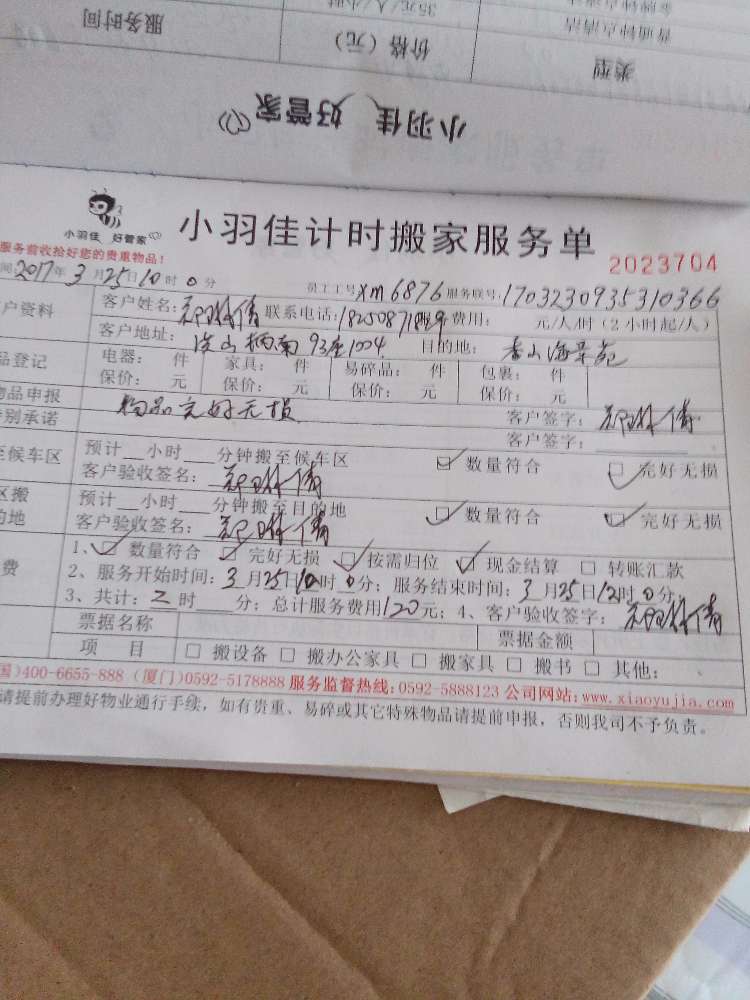 金牌钟点清洁
35元/人/小时
普通钟点清洁
类型
价格（元）
服务时间
小羽佳 好管家
小羽佳 好管家
小羽佳计时搬家服务单
服务前收拾好您的贵重物品！
2023704
间2017年3月25日10时0分
员工工号xm6876服务联号:1703230935310366
户资料
客户姓名: 联系电话: 费用: 元/人/时（2小时起/人）
客户地址: 93座1004 目的地: 香山海景苑
品登记
电器: 件 家具: 件 易碎品: 件 包裹: 件
保价: 元 保价: 元 保价: 元 保价: 元
物品申报
物品完好无损
客户签字:
特别承诺
客户签字:
至候车区
预计__小时___分钟搬至候车区
数量符合 完好无损
客户验收签名:
区搬
预计__小时___分钟搬至目的地
数量符合 完好无损
的地
客户验收签名:
费
1、 数量符合 完好无损 按需归位 现金结算 转账汇款
2、服务开始时间: 3月25日10时0分; 服务结束时间: 3月25日12时0分;
3、共计: 二时___分; 总计服务费用120元; 4、客户验收签字:
票据名称 票据金额
项 目 □ 搬设备 □ 搬办公家具 □ 搬家具 □ 搬书 □ 其他:
国)400-6655-888 (厦门)0592-5178888 服务监督热线: 0592-5888123 公司网站: www.xiaoyujia.com
请提前办理好物业通行手续，如有贵重、易碎或其它特殊物品请提前申报，否则我司不予负责。